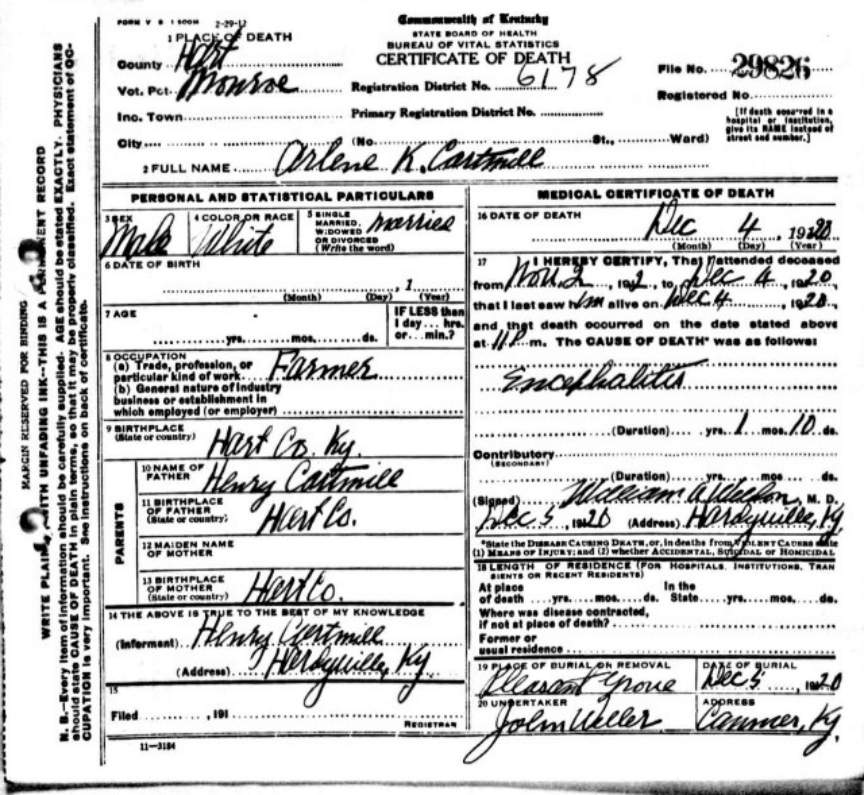 FORM V S 1 500M 2-29-12
Commonwealth of Kentucky
STATE BOARD OF HEALTH
BUREAU OF VITAL STATISTICS
CERTIFICATE OF DEATH
1 PLACE OF DEATH
County Hart
Vot. Pct. Monroe
Registration District No. 6178
File No. 29826
Registered No.
Inc. Town
Primary Registration District No.
[If death occurred in a
hospital or institution,
give its NAME instead of
street and number.]
City (No. St., Ward)
2 FULL NAME Arlene K. Cartmill
PERSONAL AND STATISTICAL PARTICULARS
3 SEX Male
4 COLOR OR RACE White
5 SINGLE
MARRIED,
WIDOWED
OR DIVORCED
(Write the word)
Married
6 DATE OF BIRTH
, 1
(Month) (Day) (Year)
7 AGE
yrs. mos. ds.
IF LESS than
1 day... hrs.
or... min.?
8 OCCUPATION
(a) Trade, profession, or
particular kind of work Farmer
(b) General nature of industry
business or establishment in
which employed (or employer)
9 BIRTHPLACE
(State or country) Hart Co. Ky.
PARENTS
10 NAME OF
FATHER Henry Cartmill
11 BIRTHPLACE
OF FATHER
(State or country) Hart Co.
12 MAIDEN NAME
OF MOTHER
13 BIRTHPLACE
OF MOTHER
(State or country) Hart Co.
14 THE ABOVE IS TRUE TO THE BEST OF MY KNOWLEDGE
(Informant) Henry Cartmill
(Address) Hardyville, Ky
15
Filed , 191
REGISTRAR
11-3184
MEDICAL CERTIFICATE OF DEATH
16 DATE OF DEATH
Dec 4, 1920
(Month) (Day) (Year)
17 I HEREBY CERTIFY, That I attended deceased
from Nov. 2, 191, to Dec 4, 1920,
that I last saw him alive on Dec 4, 1920,
and that death occurred on the date stated above
at 11 P m. The CAUSE OF DEATH* was as follows:
Encephalitis
(Duration) yrs. 1 mos. 10 ds.
Contributory
(SECONDARY)
(Duration) yrs. mos. ds.
(Signed) William, M. D.
Dec 5, 1920 (Address) Hardyville, Ky
*State the DISEASE CAUSING DEATH, or, in deaths from VIOLENT CAUSES state
(1) MEANS OF INJURY; and (2) whether ACCIDENTAL, SUICIDAL or HOMICIDAL
18 LENGTH OF RESIDENCE (FOR HOSPITALS, INSTITUTIONS, TRAN
SIENTS OR RECENT RESIDENTS)
At place In the
of death yrs. mos. ds. State yrs. mos. ds.
Where was disease contracted,
if not at place of death?
Former or
usual residence
19 PLACE OF BURIAL OR REMOVAL
Pleasant Grove
DATE OF BURIAL
Dec 5, 1920
20 UNDERTAKER
John
ADDRESS
Canmer, Ky.
MARGIN RESERVED FOR BINDING
WRITE PLAINLY, WITH UNFADING INK--THIS IS A PERMANENT RECORD
N. B.—Every item of information should be carefully supplied. AGE should be stated EXACTLY. PHYSICIANS
should state CAUSE OF DEATH in plain terms, so that it may be properly classified. Exact statement of OC-
CUPATION is very important. See instructions on back of certificate.